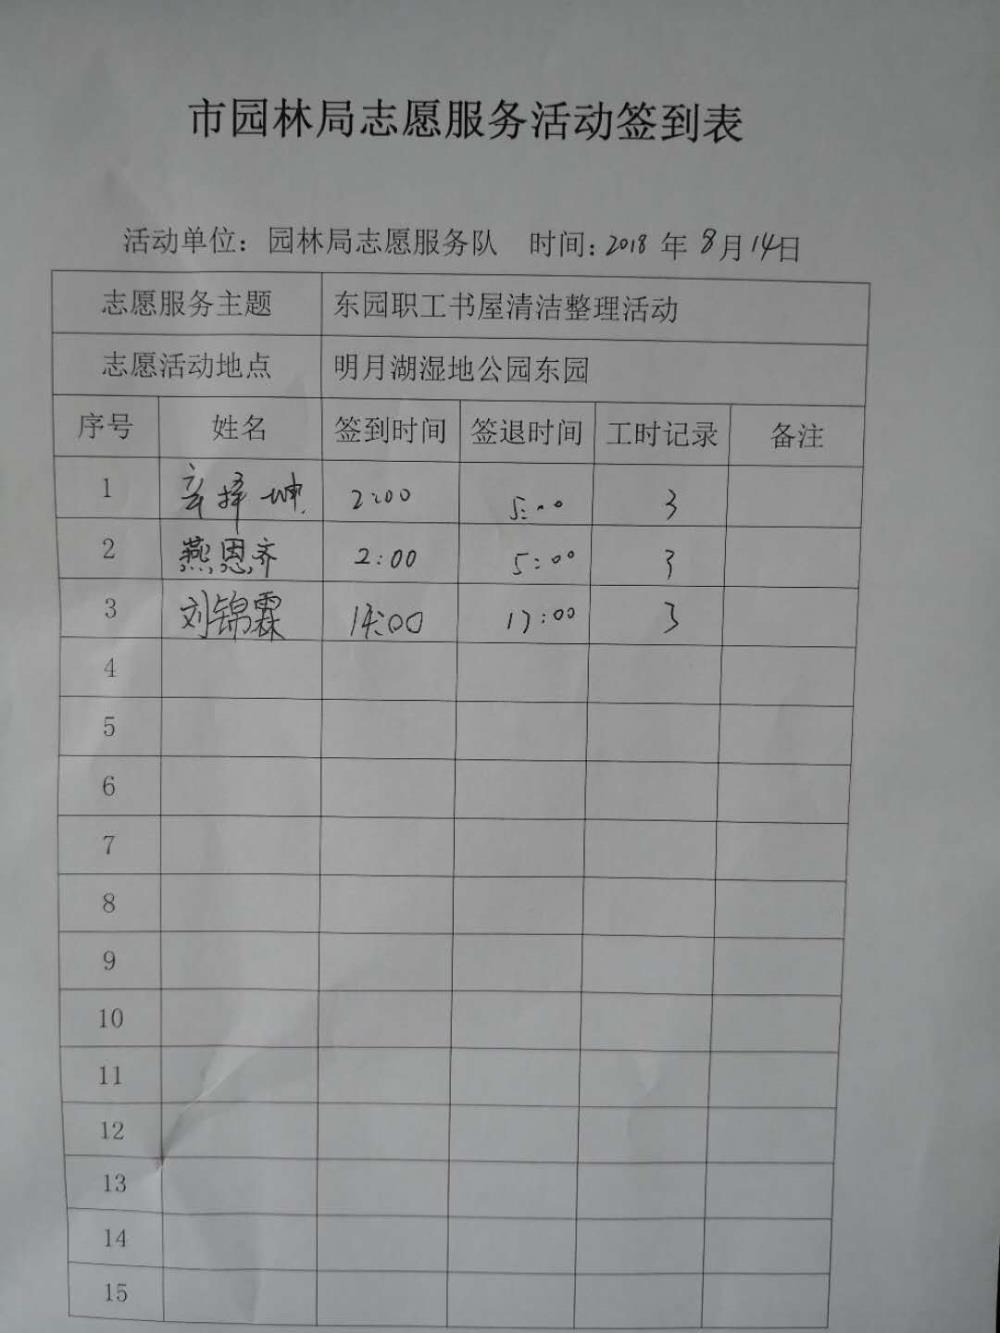 市园林局志愿服务活动签到表
活动单位：园林局志愿服务队 时间：2018 年 8月14日
志愿服务主题 东园职工书屋清洁整理活动
志愿活动地点 明月湖湿地公园东园
序号 姓名 签到时间 签退时间 工时记录 备注
1 辛择坤 2:00 5:00 3
2 燕恩齐 2:00 5:00 3
3 刘锦霖 14:00 17:00 3
4
5
6
7
8
9
10
11
12
13
14
15